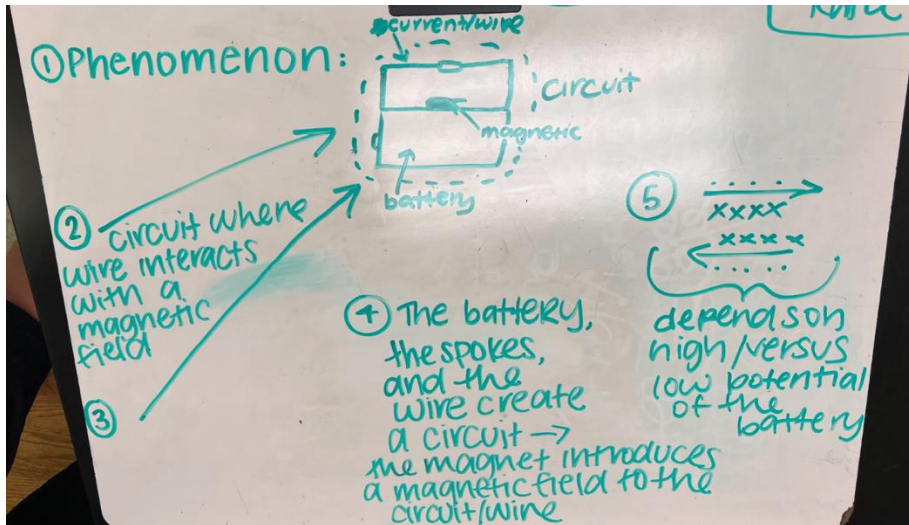 ① Phenomenon:
current/wire
circuit
magnetic
battery
② circuit where
wire interacts
with a
magnetic
field
③
④ The battery,
the spokes,
and the
wire create
a circuit →
the magnet introduces
a magnetic field to the
circuit/wire
⑤
. . . .
xxxx
xxxx
. . . .
depends on
high/versus
low potential
of the
battery